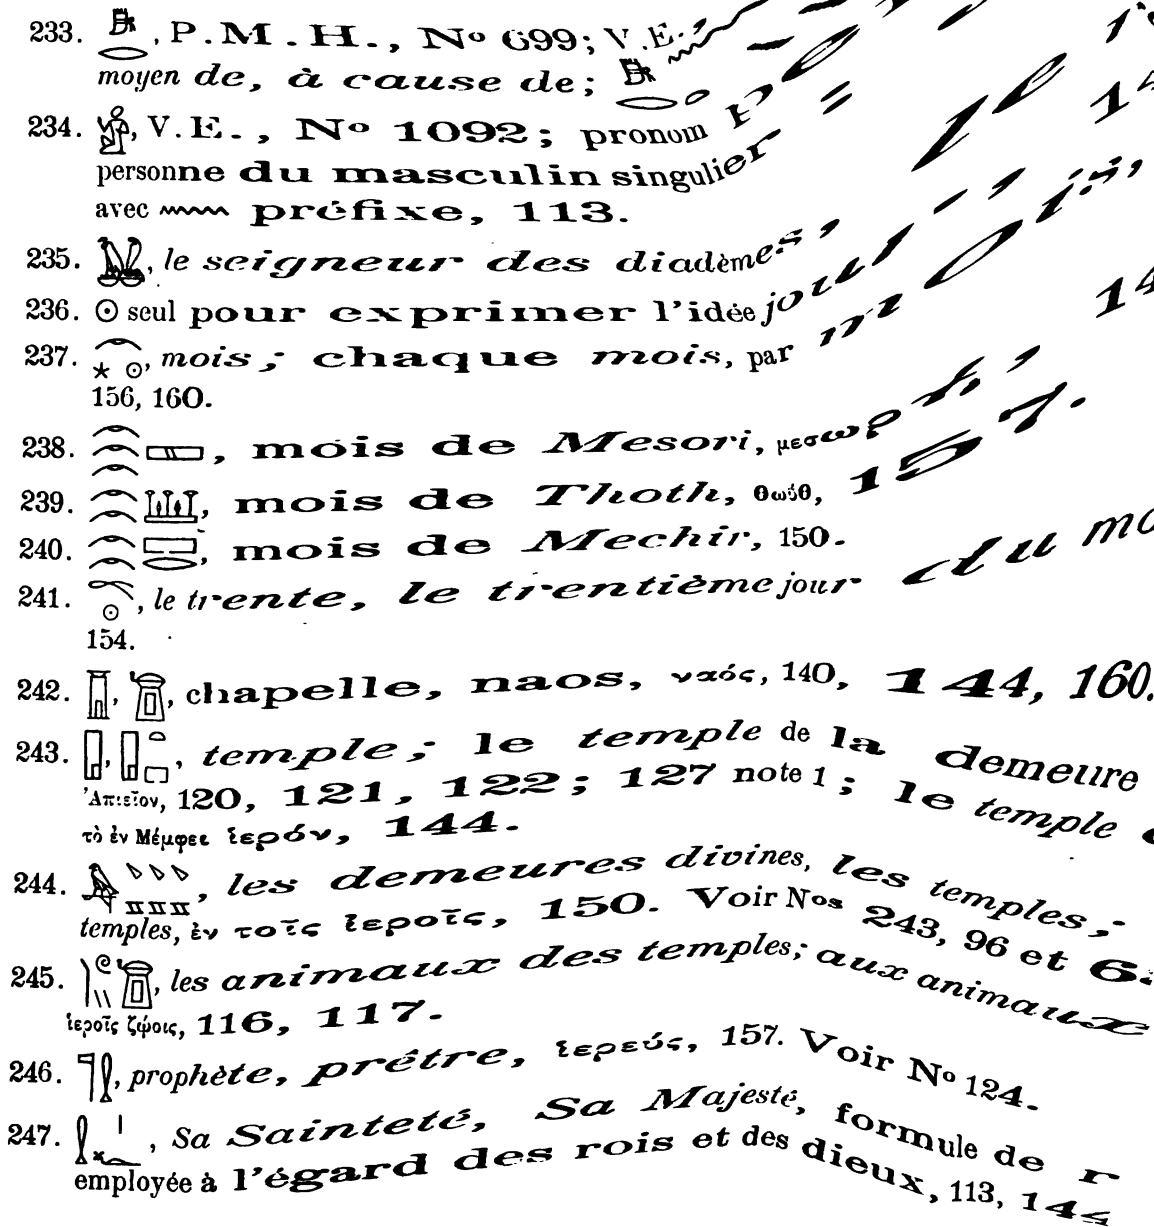 233. , P.M.H., Nº 699; V.E.,
moyen de, à cause de;
234. , V.E., Nº 1092; pronom
personne du masculin singulier =
avec préfixe, 113.
235. , le seigneur des diadèmes,
236. ☉ seul pour exprimer l'idée jour,
237. , mois; chaque mois, par mois,
156, 160.
238. , mois de Mesori, μεσωρή,
239. , mois de Thoth, Θωύθ, 157.
240. , mois de Mechir, 150.
241. , le trente, le trentième jour du
154.
242. , , chapelle, naos, ναός, 140, 144, 160.
243. , , temple; le temple de la demeure
Ἀπιεῖον, 120, 121, 122; 127 note 1; le temple
τὸ ἐν Μέμφει ἱερόν, 144.
244. , les demeures divines, les temples;
temples, ἐν τοῖς ἱεροῖς, 150. Voir Nos 243, 96 et
245. , les animaux des temples; aux animaux
ἱεροῖς ζῴοις, 116, 117.
246. , prophète, prêtre, ἱερεύς, 157. Voir Nº 124.
247. , Sa Sainteté, Sa Majesté, formule de
employée à l'égard des rois et des dieux, 113, 144